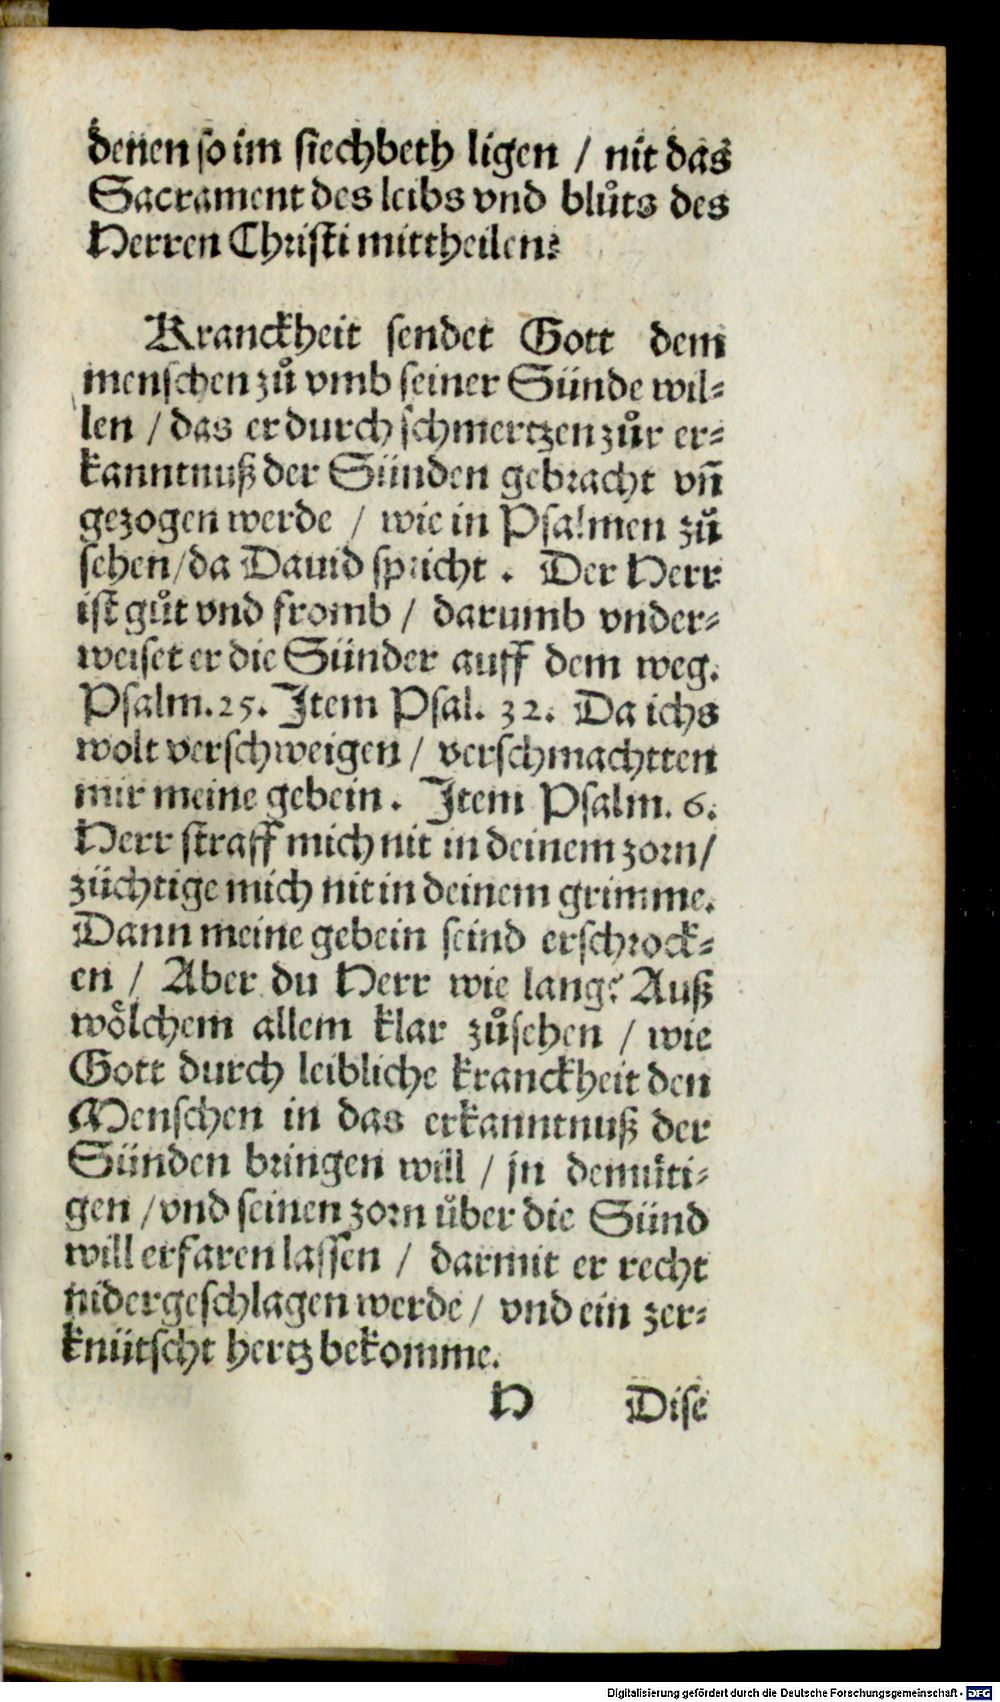 denen so im siechbeth ligen / nit das
Sacrament des leibs vnd blůts des
Herren Christi mittheilen?
Kranckheit sendet Gott dem
menschen zů vmb seiner Sünde wil-
len / das er durch schmertzen zůr er-
kanntnuß der Sünden gebracht vñ
gezogen werde / wie in Psalmen zů
sehen / da Dauid spricht. Der Herr
ist gůt vnd fromb / darumb vnder-
weiset er die Sünder auff dem weg.
Psalm. 25. Item Psal. 32. Da ichs
wolt verschweigen / verschmachtten
mir meine gebein. Item Psalm. 6.
Herr straff mich nit in deinem zorn /
züchtige mich nit in deinem grimme.
Dann meine gebein seind erschrock-
en / Aber du Herr wie lang? Auß
wölchem allem klar zůsehen / wie
Gott durch leibliche kranckheit den
Menschen in das erkanntnuß der
Sünden bringen will / jn demüti-
gen / vnd seinen zorn über die Sünd
will erfaren lassen / darmit er recht
nidergeschlagen werde / vnd ein zer-
knütscht hertz bekomme.
H Dise
Digitalisierung gefördert durch die Deutsche Forschungsgemeinschaft - DFG